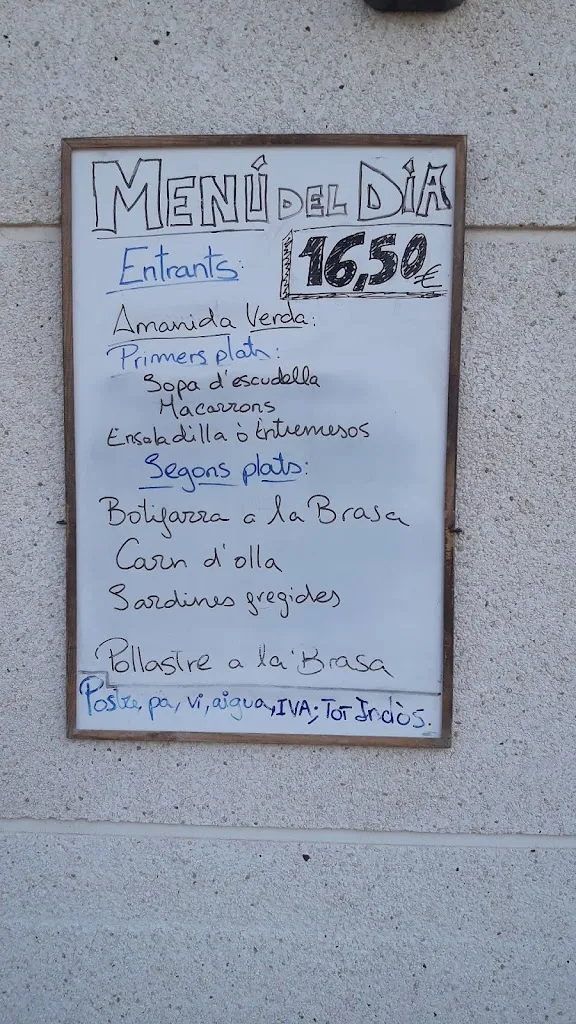 MENÚ DEL DÍA
Entrants:
16,50€
Amanida Verda:
Primers plats:
Sopa d'escudella
Macarrons
Ensaladilla ò Entremesos
Segons plats:
Botifarra a la Brasa
Carn d'olla
Sardines fregides
Pollastre a la Brasa
Postre, pa, vi, aigua, IVA; Tot Inclòs.